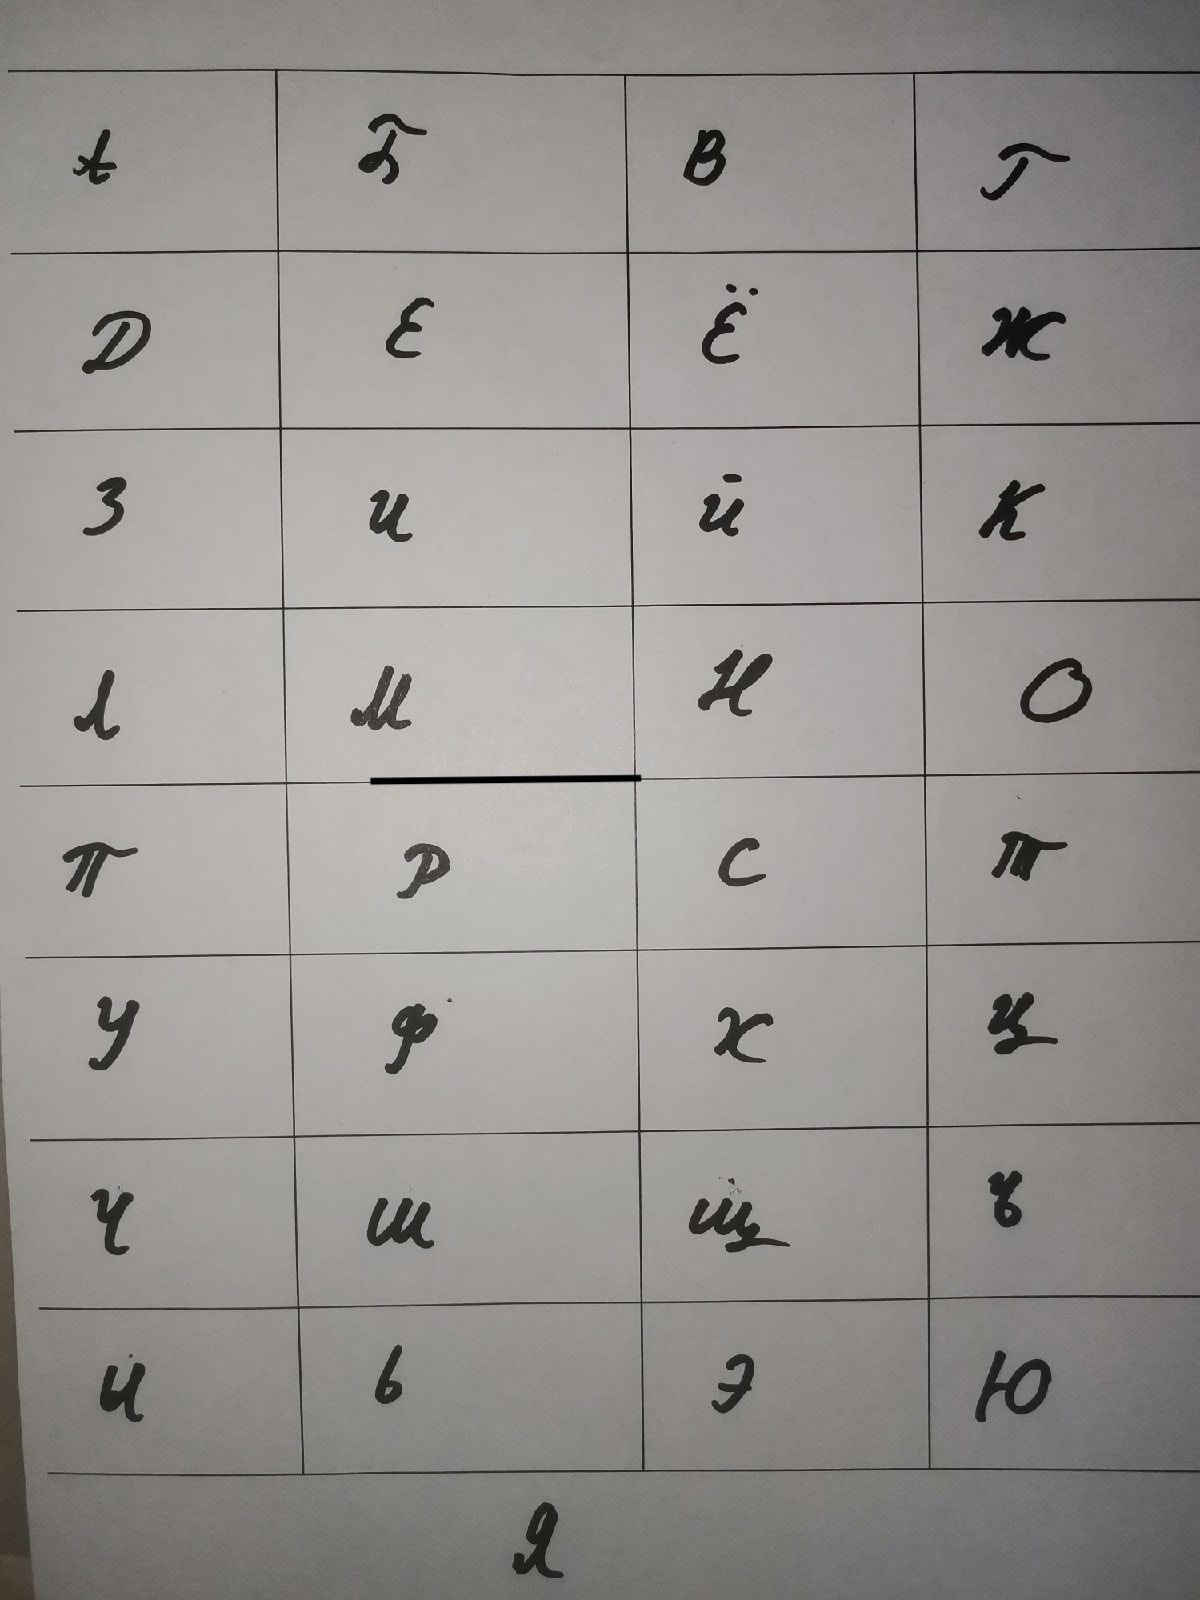 А Б В Г
Д Е Ё Ж
З И Й К
Л М Н О
П Р С Т
У Ф Х Ц
Ч Ш Щ Ъ
И Ь Э Ю
Я